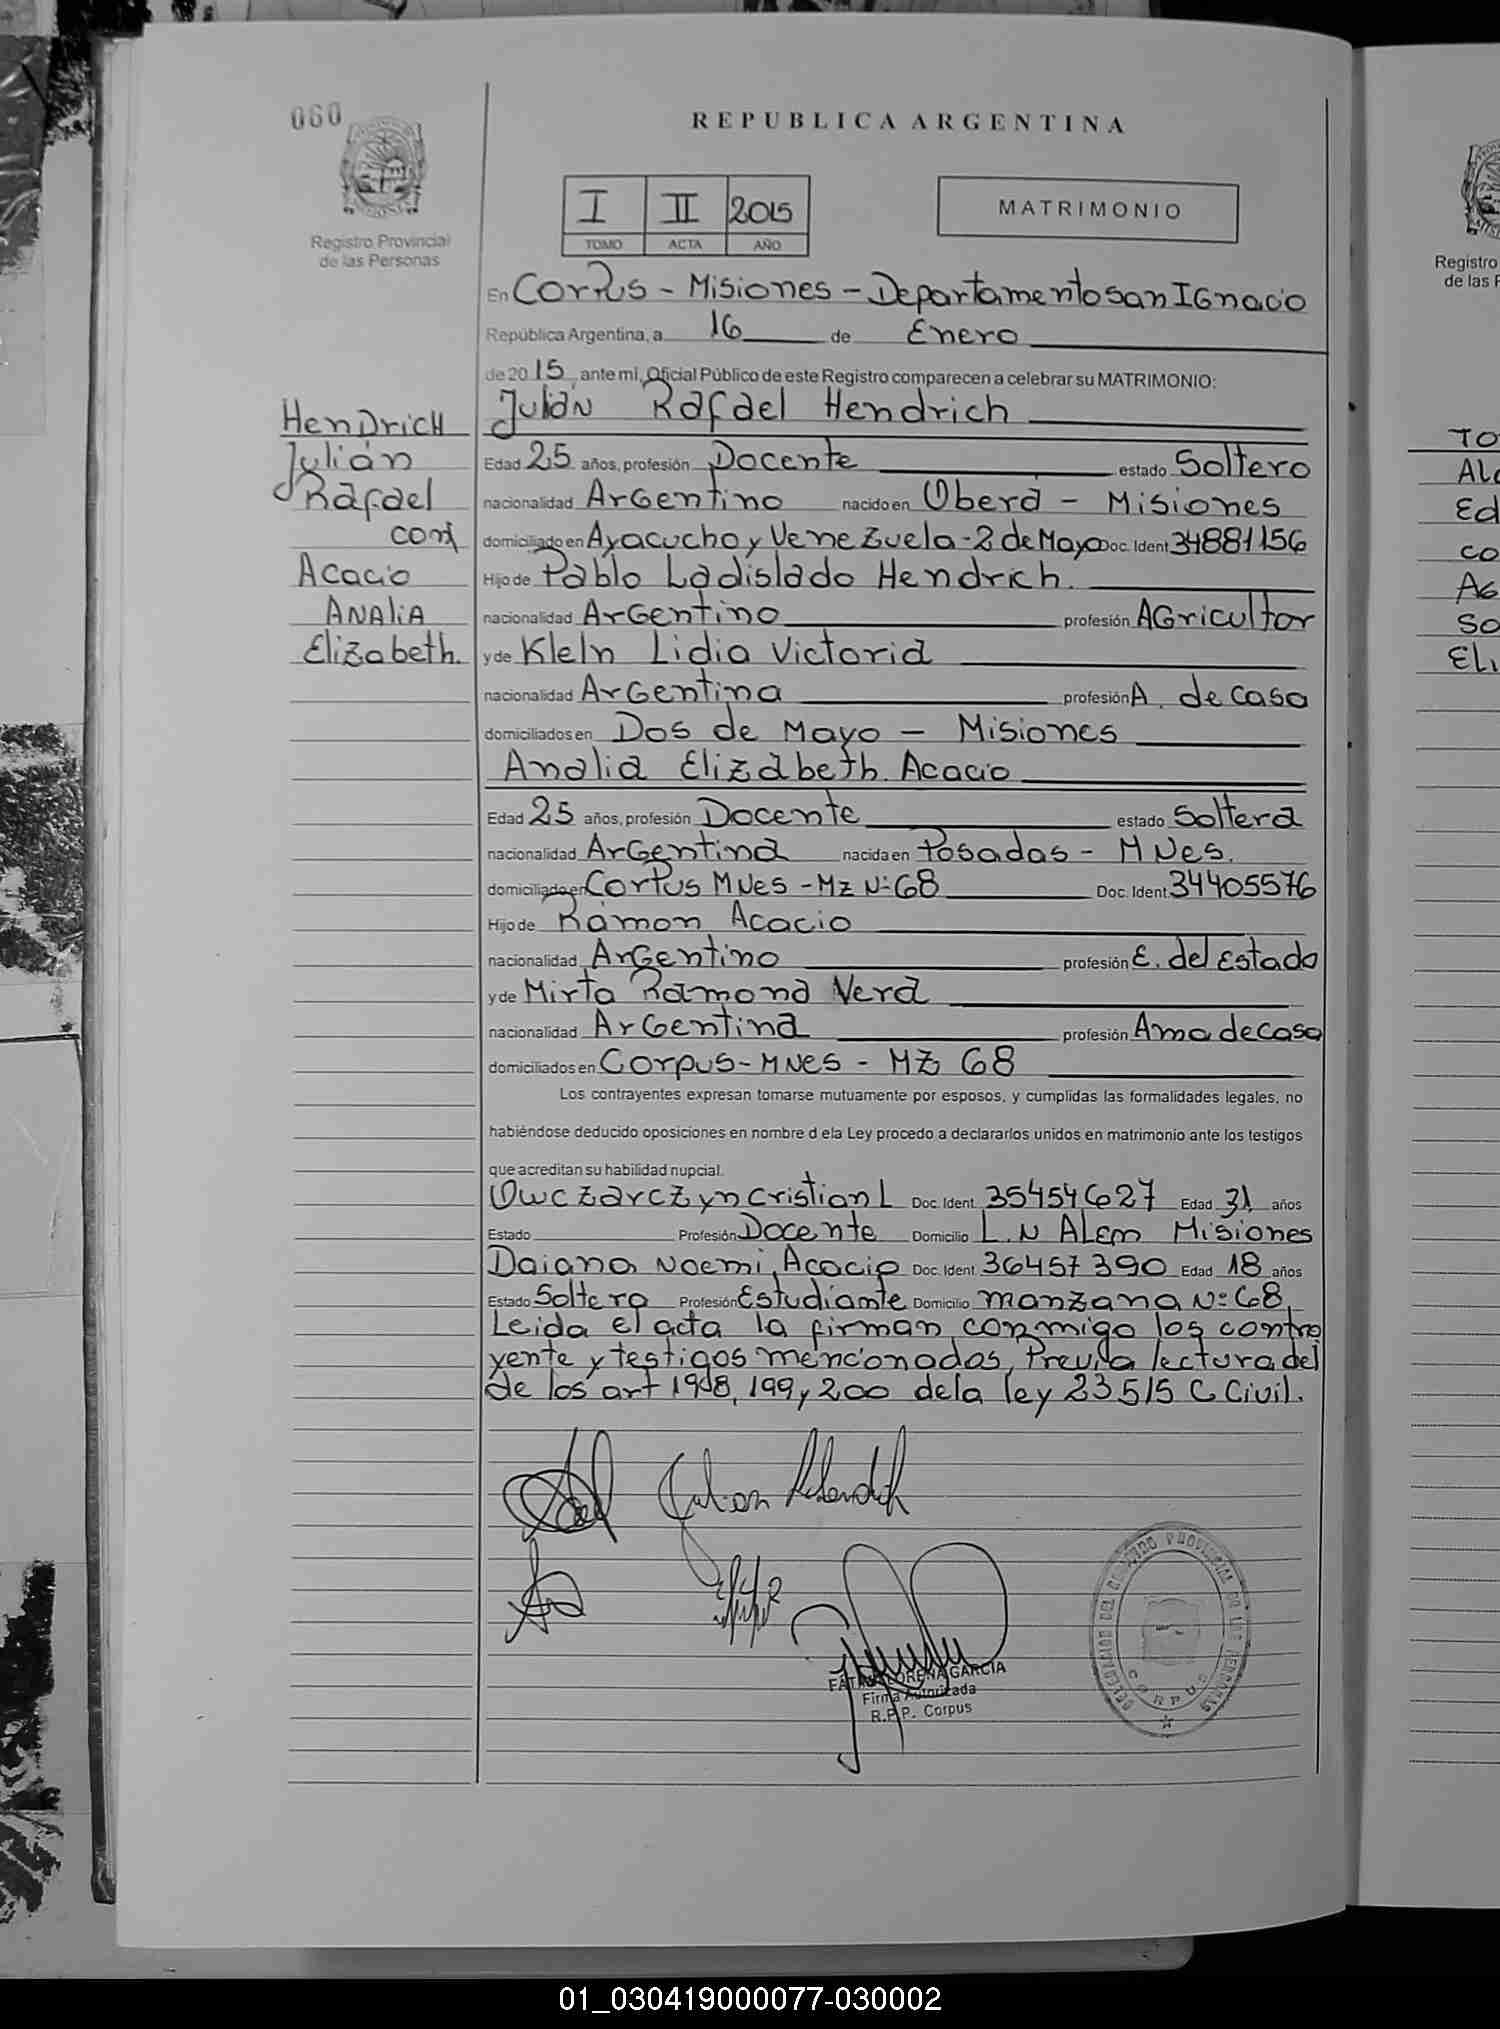 060
REPUBLICA ARGENTINA
I II 2015
TOMO ACTA AÑO
MATRIMONIO
Registro Provincial
de las Personas
En Corpus - Misiones - Departamento san IGnacio
República Argentina, a 16 de Enero
de 2015, ante mi, Oficial Público de este Registro comparecen a celebrar su MATRIMONIO:
Hendrich
Julián
Rafael
con
Acacio
ANALIA
Elizabeth.
Julián Rafael Hendrich
Edad 25 años, profesión Docente estado Soltero
nacionalidad ArGentino nacido en Oberá - Misiones
domiciliado en Ayacucho y VeneZuela - 2 de Mayo Doc. Ident 34881156
Hijo de Pablo Ladislado Hendrich.
nacionalidad ArGentino profesión AGricultor
y de KleIn Lidia Victoria
nacionalidad ArGentina profesión A. de casa
domiciliados en Dos de Mayo - Misiones
Analia Elizabeth. Acacio
Edad 25 años, profesión Docente estado Soltera
nacionalidad ArGentina nacida en Posadas - MNes.
domiciliado en Corpus MNes - Mz Nº 68 Doc. Ident. 34405576
Hijo de Ramon Acacio
nacionalidad ArGentino profesión E. del Estado
y de Mirta Ramona Vera
nacionalidad ArGentina profesión Ama de casa
domiciliados en Corpus - MNes - MZ 68
Los contrayentes expresan tomarse mutuamente por esposos, y cumplidas las formalidades legales, no
habiéndose deducido oposiciones en nombre d ela Ley procedo a declararlos unidos en matrimonio ante los testigos
que acreditan su habilidad nupcial.
Owczarczyn Cristian L Doc. Ident. 35454627 Edad 31 años
Estado Profesión Docente Domicilio L. N ALem Misiones
Daiana Noemi, Acacio Doc. Ident. 36457390 Edad 18 años
Estado Soltera Profesión Estudiante Domicilio manzana Nº 68
Leida el acta la firman conmigo los contra
yente y testigos mencionados, Previa lectura del
de los art 198, 199, 200 dela ley 23515 C Civil.
Julian R Hendrich
FÁTIMA LORENA GARCÍA
Firma Autorizada
R.P.P. Corpus
DELEGACION DEL REGISTRO PROVINCIAL DE LAS PERSONAS
CORPUS
Registro
de las P
TO
Ed
co
AG
So
Eli
01_030419000077-030002